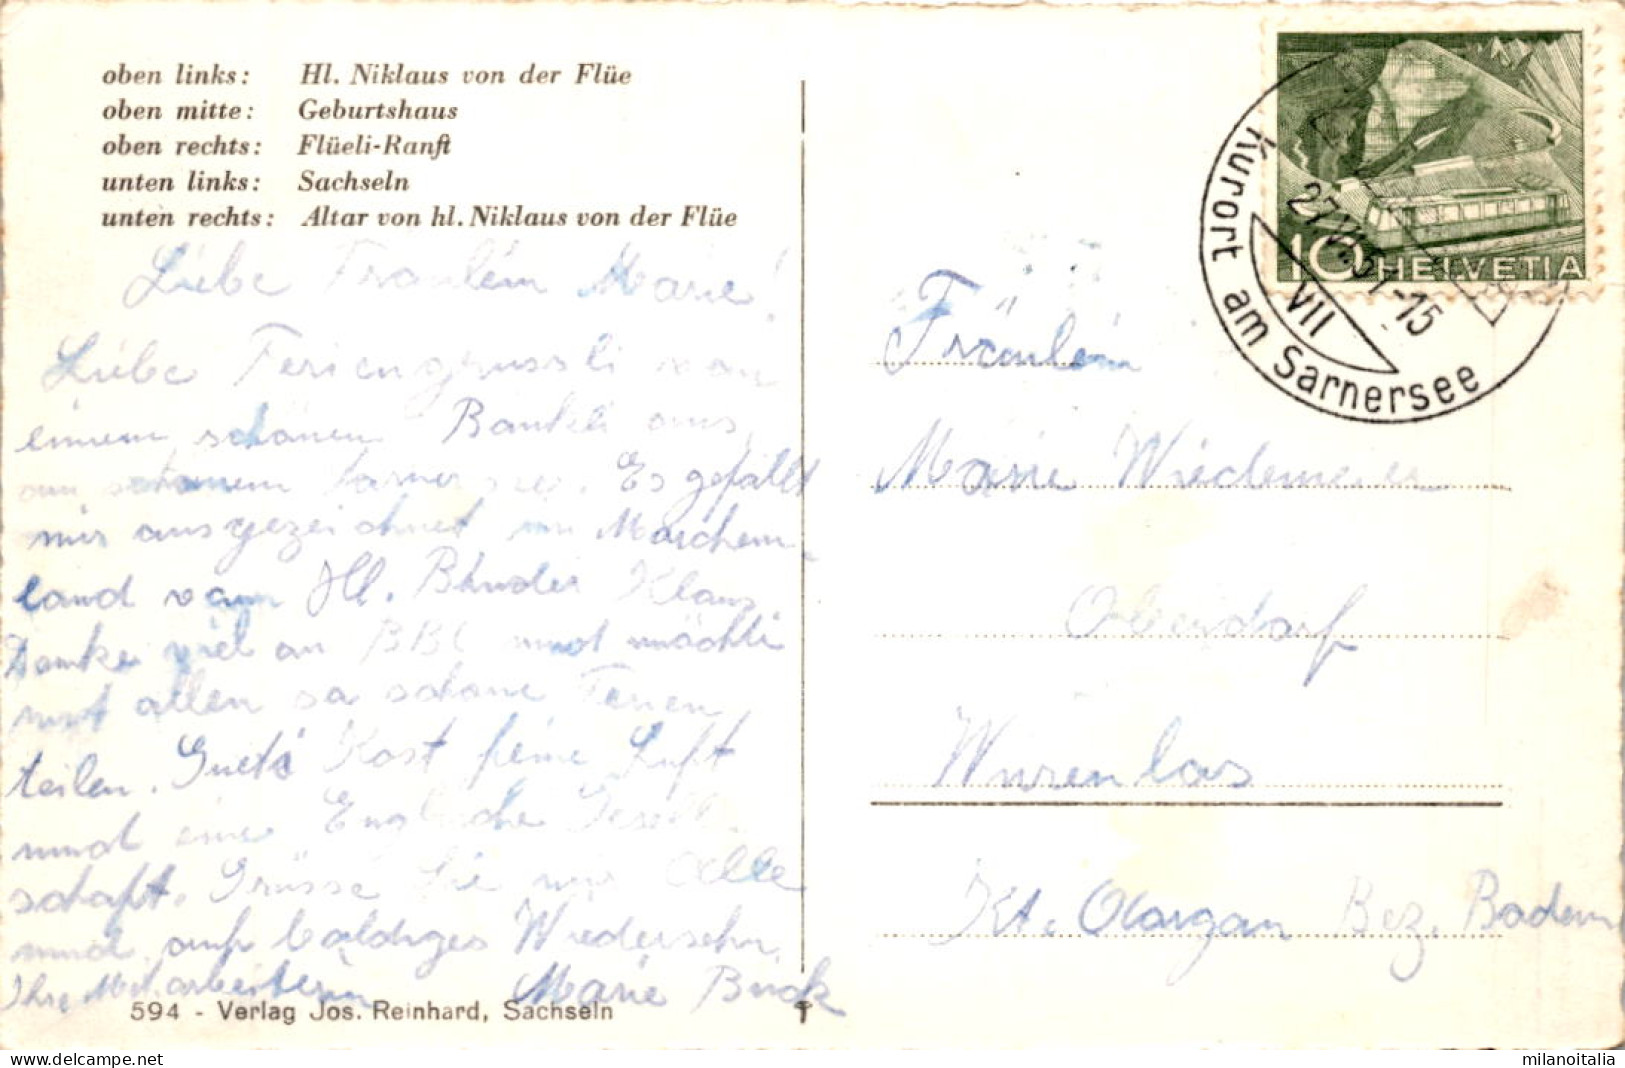 oben links: Hl. Niklaus von der Flüe
oben mitte: Geburtshaus
oben rechts: Flüeli-Ranft
unten links: Sachseln
unten rechts: Altar von hl. Niklaus von der Flüe
Liebe Fräulein Marie!
Liebe Feriengrüssli von
einem schönen Bänkli aus,
am schönem Sarnersee. Es gefällt
mir ausgezeichnet im Märchen-
land vom Hl. Bruder Klaus.
Danke viel an BBC und möchti
mit allen so schöne Ferien
teilen. Gueti Kost feine Luft
und eine Englische Gesell-
schaft. Grüsse Sie mir Alle
und auf baldiges Wiedersehn.
Ihre Mitarbeiterin Marie Buck
594 - Verlag Jos. Reinhard, Sachseln
HELVETIA
10
Kurort am Sarnersee
27.VII.51-15
VII
Fräulein
Marie Wiedemeier
Oberdorf
Würenlos
Kt. Aargau Bez. Baden
milanoitalia